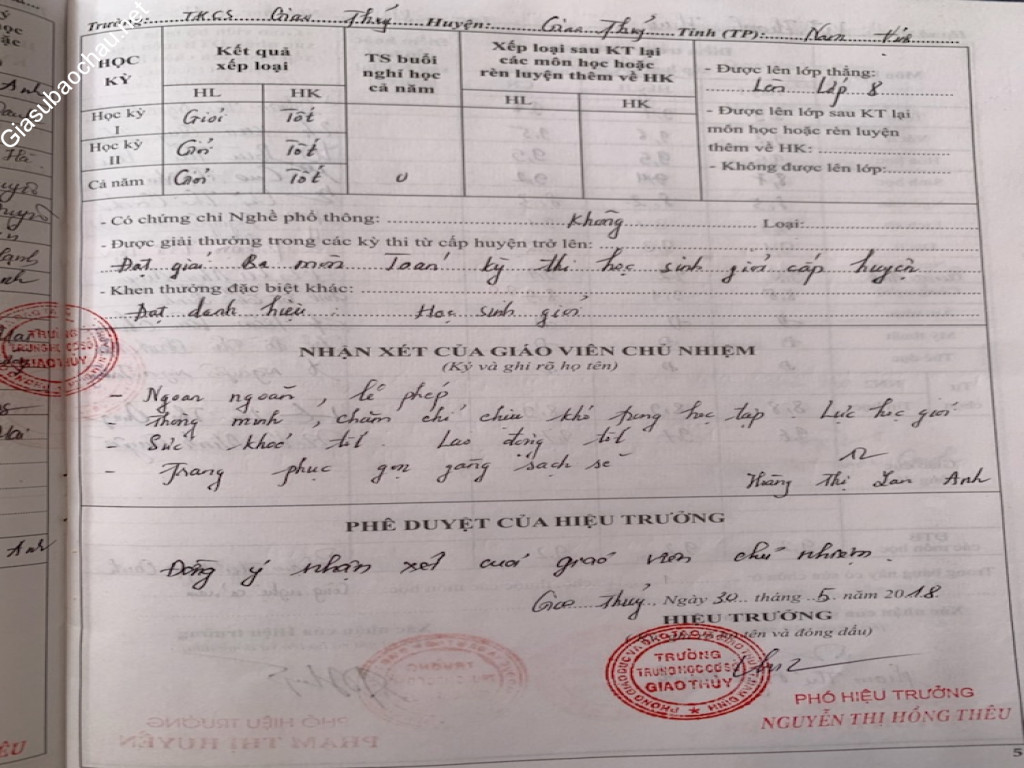 Trường: T.H.C.S Giao Thủy Huyện: Giao Thủy Tỉnh (TP): Nam Định
HỌC KỲ
Kết quả xếp loại
TS buổi nghỉ học cả năm
Xếp loại sau KT lại các môn học hoặc rèn luyện thêm về HK
HL HK HL HK
- Được lên lớp thẳng:
Lên lớp 8
Học kỳ I Giỏi Tốt
- Được lên lớp sau KT lại
môn học hoặc rèn luyện
thêm về HK:
Học kỳ II Giỏi Tốt
- Không được lên lớp:
Cả năm Giỏi Tốt 0
- Có chứng chỉ Nghề phổ thông: Không Loại:
- Được giải thưởng trong các kỳ thi từ cấp huyện trở lên:
Đạt giải Ba môn Toán kỳ thi học sinh giỏi cấp huyện
- Khen thưởng đặc biệt khác:
Đạt danh hiệu: Học sinh giỏi
NHẬN XÉT CỦA GIÁO VIÊN CHỦ NHIỆM
(Ký và ghi rõ họ tên)
- Ngoan ngoãn, lễ phép
- Thông minh, chăm chỉ chịu khó trong học tập Lực học giỏi
- Sức khoẻ tốt. Lao động tốt
- Trang phục gọn gàng sạch sẽ
Hoàng Thị Lan Anh
PHÊ DUYỆT CỦA HIỆU TRƯỞNG
Đồng ý nhận xét của giáo viên chủ nhiệm
Giao Thủy Ngày 30 tháng 5 năm 2018
HIỆU TRƯỞNG
tên và đóng dấu)
TRƯỜNG
TRUNG HỌC CƠ SỞ
GIAO THỦY
PHÓ HIỆU TRƯỞNG
NGUYỄN THỊ HỒNG THÊU
5
Giasubaochau.net